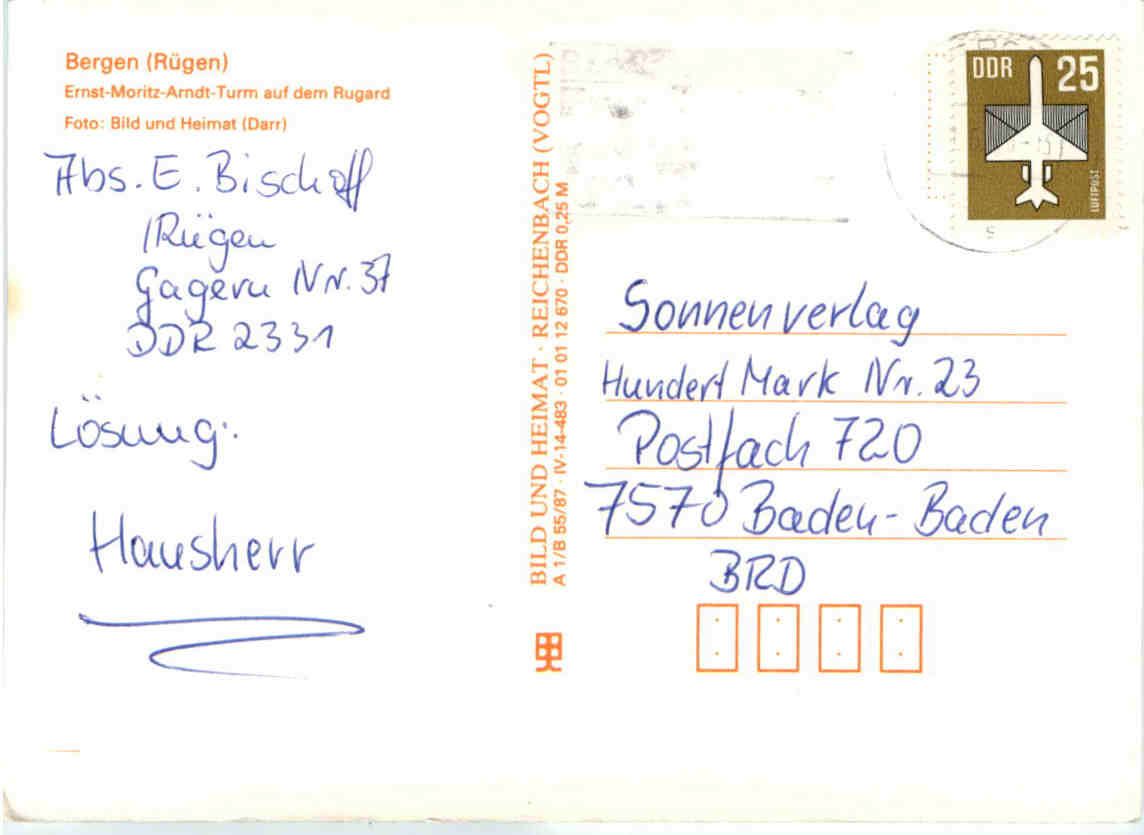 Bergen (Rügen)
Ernst-Moritz-Arndt-Turm auf dem Rugard
Foto: Bild und Heimat (Darr)
Abs. E. Bischoff
/Rügen
Gagern Nr. 37
DDR 2331
Lösung:
Hausherr
BILD UND HEIMAT · REICHENBACH (VOGTL)
A 1/B 55/87 · IV-14-483 · 01 01 12 670 · DDR 0,25 M
DDR 25
LUFTPOST
Sonnenverlag
Hundert Mark Nr. 23
Postfach 720
7570 Baden-Baden
BRD